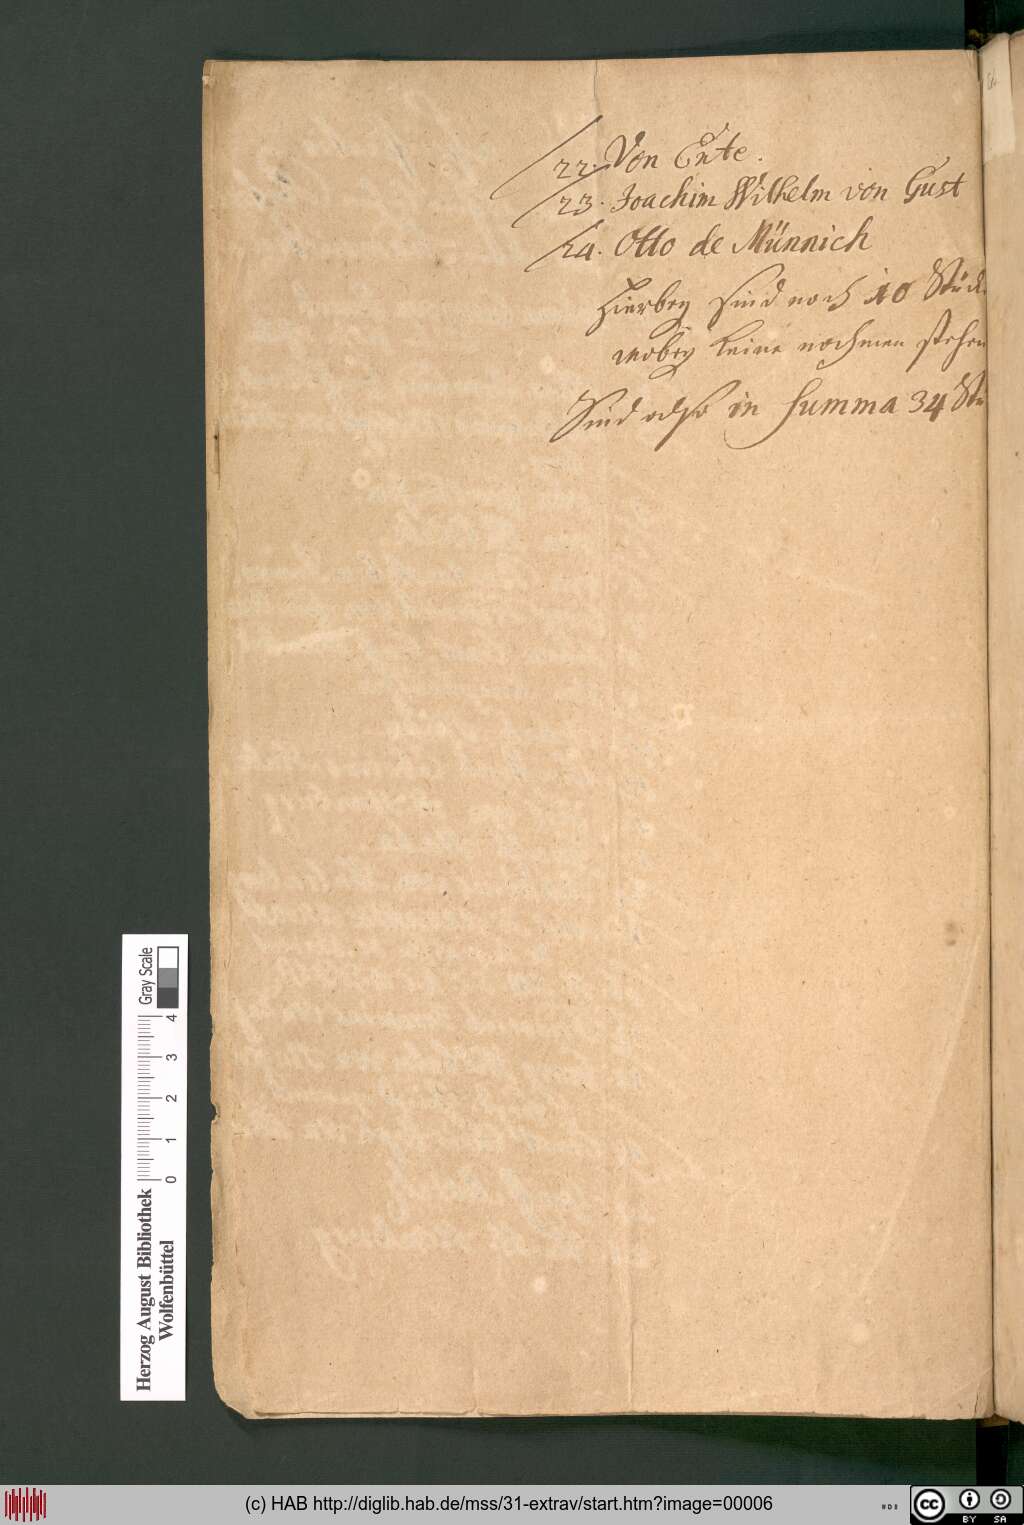 22. Von Ente.
23. Joachim Wilhelm von Gust
24. Otto de Münnich
Hierbey sind noch 10 Stück
wobey keine nahmen stehen
Sind also in Summa 34 Stü
Herzog August Bibliothek
Wolfenbüttel
0 1 2 3 4
Gray Scale
(c) HAB http://diglib.hab.de/mss/31-extrav/start.htm?image=00006
cc BY SA